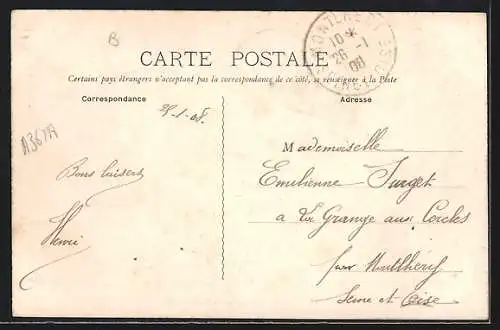 B
MONTLHERY
10 *
26 - 1
08
SEINE-ET-OISE
CARTE POSTALE
Certains pays étrangers n'acceptant pas la correspondance de ce côté, se renseigner à la Poste
Correspondance
Adresse
25-1-08.
A367A
Mademoiselle
Emilienne Surget
Bons baisers
a la Grange aux Cercles
Henri
par Montlhéry
Seine et Oise